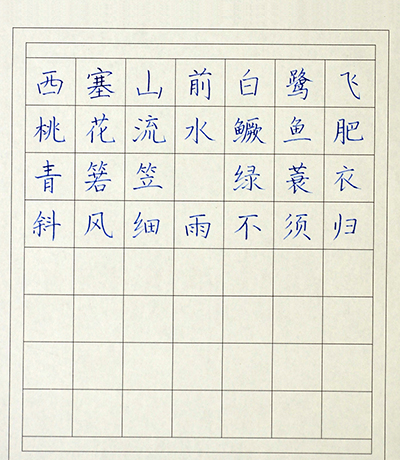 西塞山前白鹭飞
桃花流水鳜鱼肥
青箬笠 绿蓑衣
斜风细雨不须归